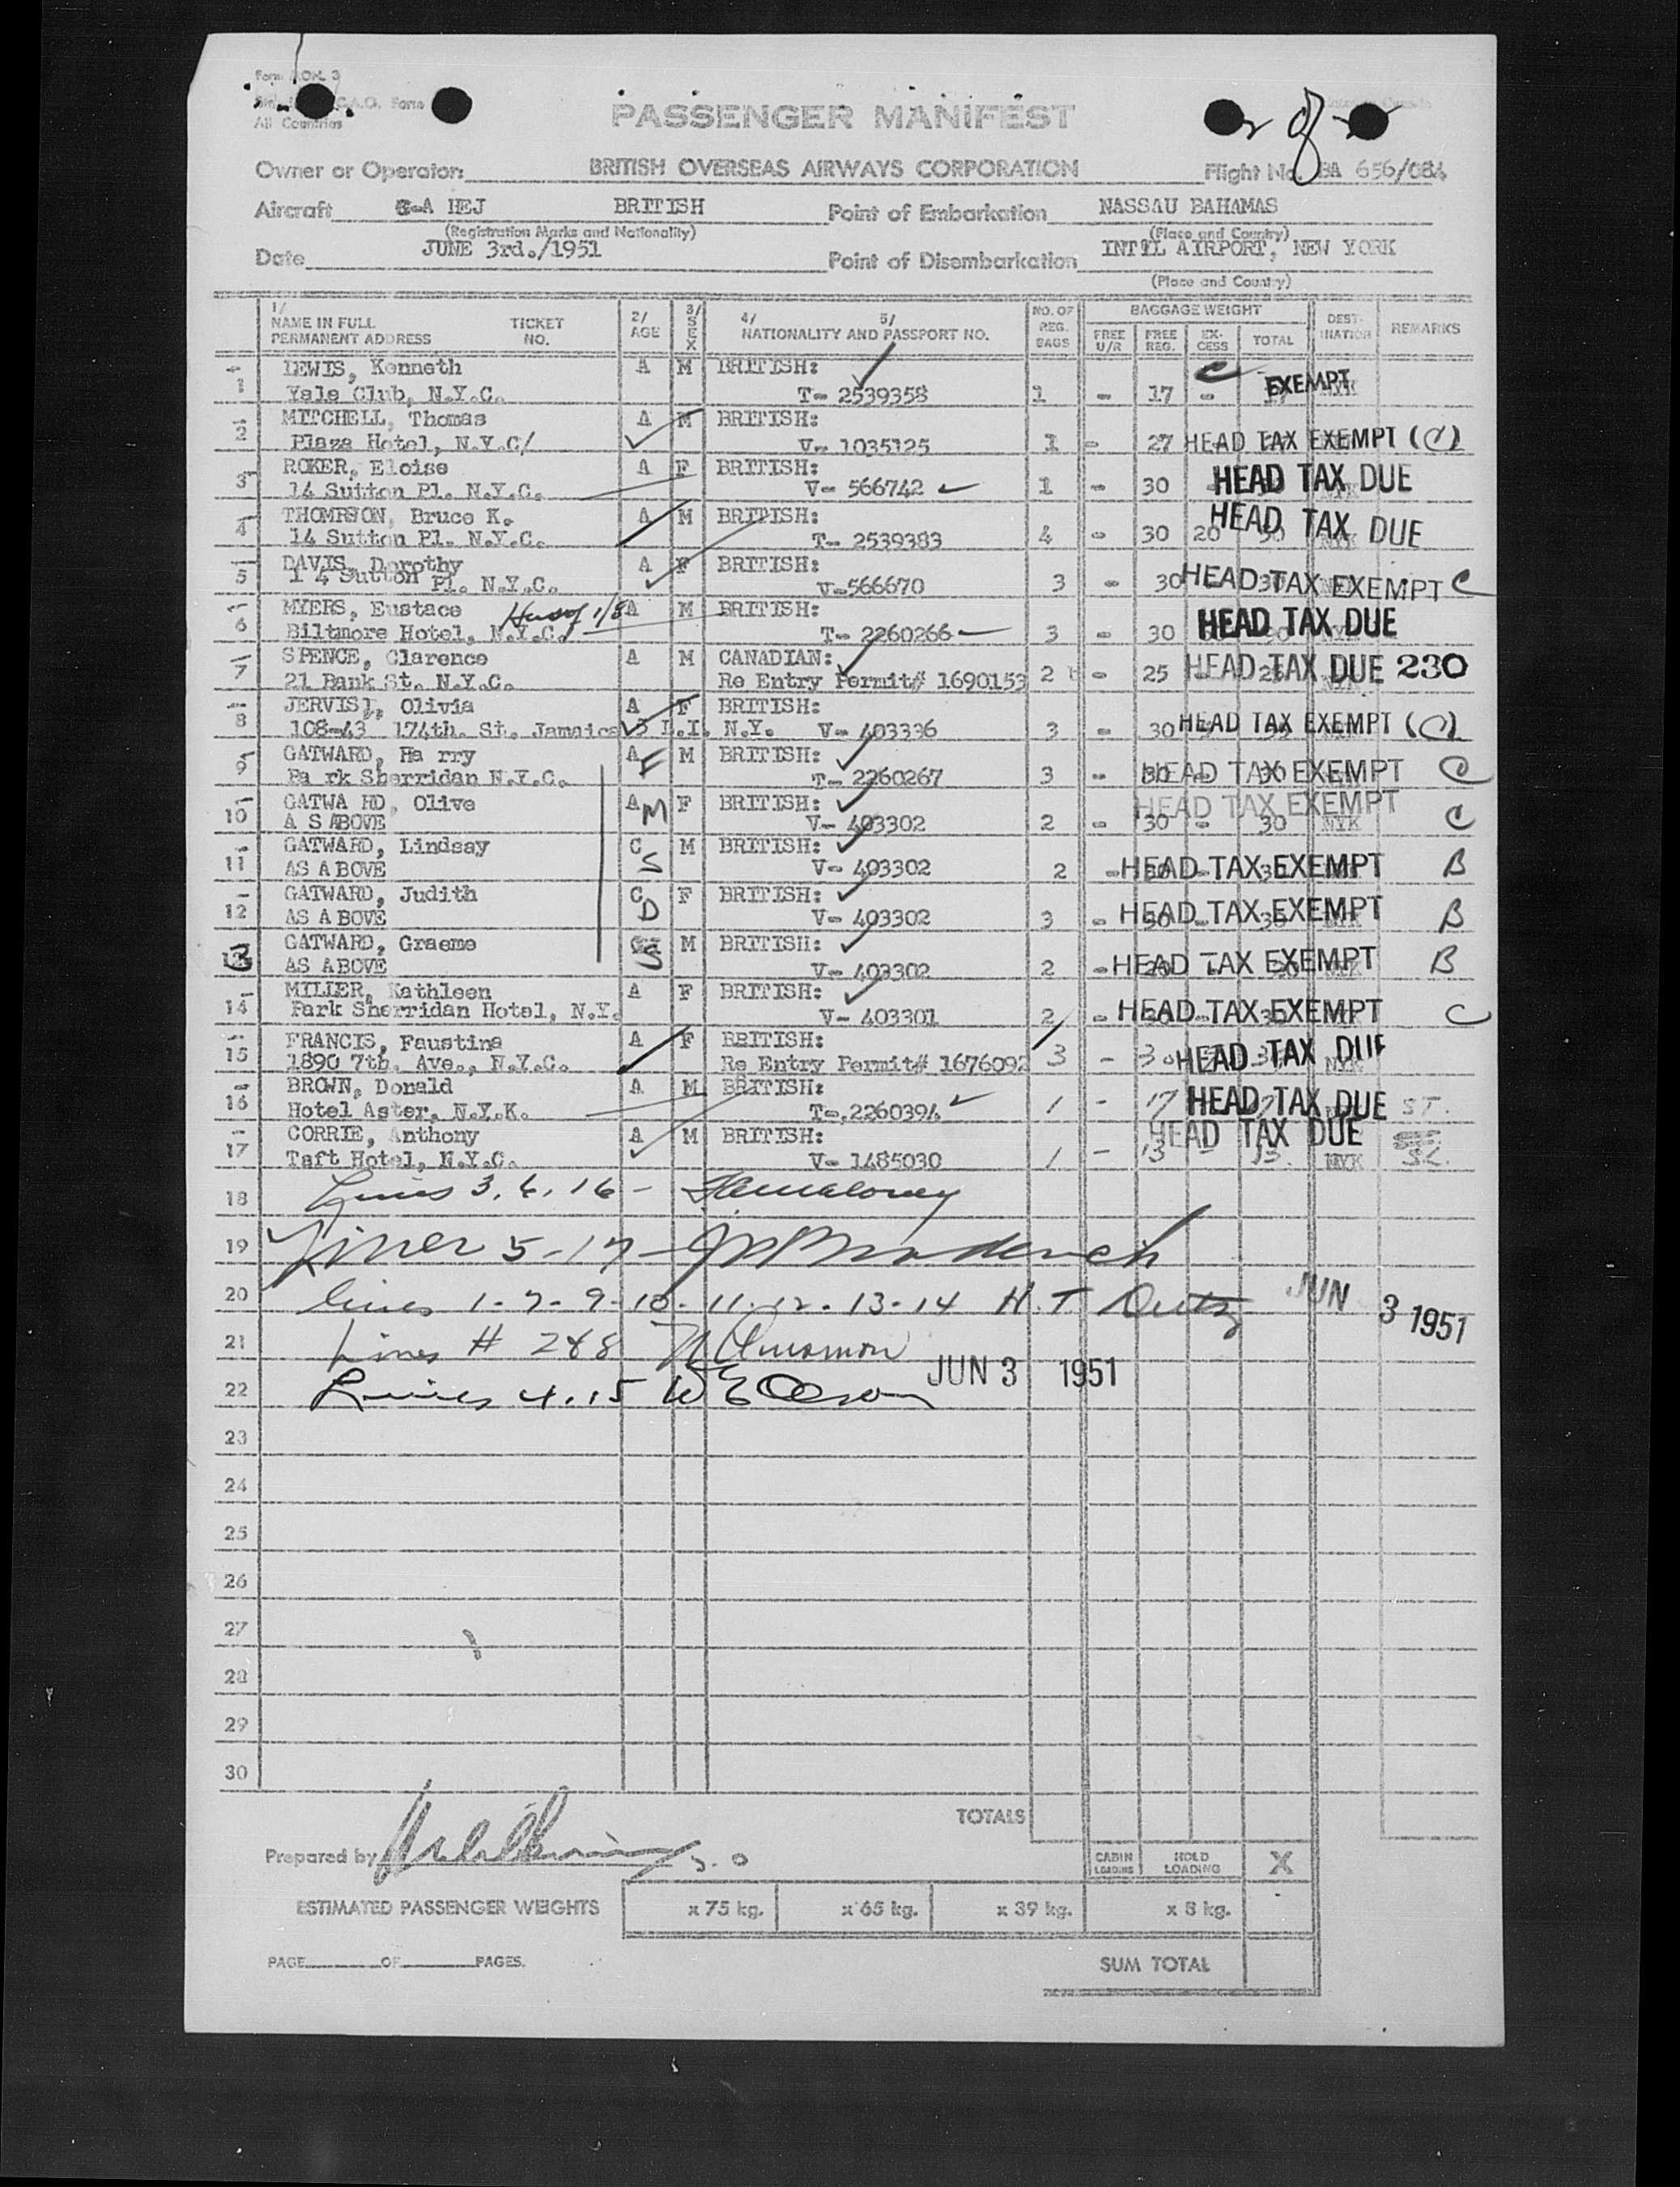 Form
All Countries
PASSENGER MANIFEST
2 of
Owner or Operator: BRITISH OVERSEAS AIRWAYS CORPORATION Flight No. BA 656/084
Aircraft G-A HEJ BRITISH Point of Embarkation NASSAU BAHAMAS
(Registration Marks and Nationality) (Place and Country)
Date JUNE 3rd./1951 Point of Disembarkation INT'L AIRPORT, NEW YORK
(Place and Country)
1/ NAME IN FULL PERMANENT ADDRESS TICKET NO. 2/ AGE 3/ SEX 4/ 5/ NATIONALITY AND PASSPORT NO. NO. OF REG. BAGS BAGGAGE WEIGHT FREE U/R FREE REG. EX-CESS TOTAL DEST-INATION REMARKS
1 LEWIS, Kenneth A M BRITISH: C EXEMPT
Yale Club, N.Y.C. T- 2539358 1 - 17 -
2 MITCHELL, Thomas A M BRITISH:
Plaza Hotel, N.Y.C/ V- 1035125 1 - 27 HEAD TAX EXEMPT (C)
3 ROKER, Eloise A F BRITISH:
14 Sutton Pl. N.Y.C. V- 566742 1 - 30 HEAD TAX DUE
4 THOMPSON, Bruce K. A M BRITISH:
14 Sutton Pl. N.Y.C. T- 2539383 4 - 30 20 HEAD TAX DUE
5 DAVIS, Dorothy A F BRITISH:
1 4 Sutton Pl. N.Y.C. V-566670 3 - 30 HEAD TAX EXEMPT C
6 MYERS, Eustace A M BRITISH:
Biltmore Hotel, N.Y.C. T- 2260266 3 - 30 HEAD TAX DUE
7 SPENCE, Clarence A M CANADIAN:
21 Bank St. N.Y.C. Re Entry Permit# 1690153 2 - 25 HEAD TAX DUE 230
8 JERVIS, Olivia A F BRITISH:
108-43 174th. St. Jamaica L.I. N.Y. V- 403336 3 - 30 HEAD TAX EXEMPT (C)
9 GATWARD, Ha rry A F M BRITISH:
Pa rk Sherridan N.Y.C. T- 2260267 3 - 30 HEAD TAX EXEMPT C
10 GATWA RD, Olive A M F BRITISH: HEAD TAX EXEMPT
A S ABOVE V- 403302 2 - 30 - 30 NYK C
11 GATWARD, Lindsay C S M BRITISH:
AS A BOVE V- 403302 2 - HEAD TAX EXEMPT B
12 GATWARD, Judith C D F BRITISH:
AS A BOVE V- 403302 3 - HEAD TAX EXEMPT B
13 GATWARD, Graeme S M BRITISH:
AS ABOVE V- 403302 2 - HEAD TAX EXEMPT B
14 MILLER, Kathleen A F BRITISH:
Park Sherridan Hotel, N.Y. V- 403301 2 - HEAD TAX EXEMPT C
15 FRANCIS, Faustina A F BRITISH:
1890 7th. Ave., N.Y.C. Re Entry Permit# 1676092 3 - 30 HEAD TAX DUE
16 BROWN, Donald A M BRITISH:
Hotel Aster, N.Y.K. T-,2260394 1 - 17 HEAD TAX DUE ST.
17 CORRIE, Anthony A M BRITISH: HEAD TAX DUE
Taft Hotel, N.Y.C. V- 1485030 1 - 13 - 13. NYK
18 Lines 3, 6, 16 -
19 Lines 5-17 -
20 lines 1-7-9-10-11-12-13-14 H. T. JUN 3 1951
21 Lines # 2&8
JUN 3 1951
22 Lines 4, 15 W E Olson
23
24
25
26
27
28
29
30
TOTALS
Prepared by
CABIN LOADING HOLD LOADING X
ESTIMATED PASSENGER WEIGHTS x 75 kg. x 65 kg. x 39 kg. x 8 kg.
PAGE OF PAGES. SUM TOTAL